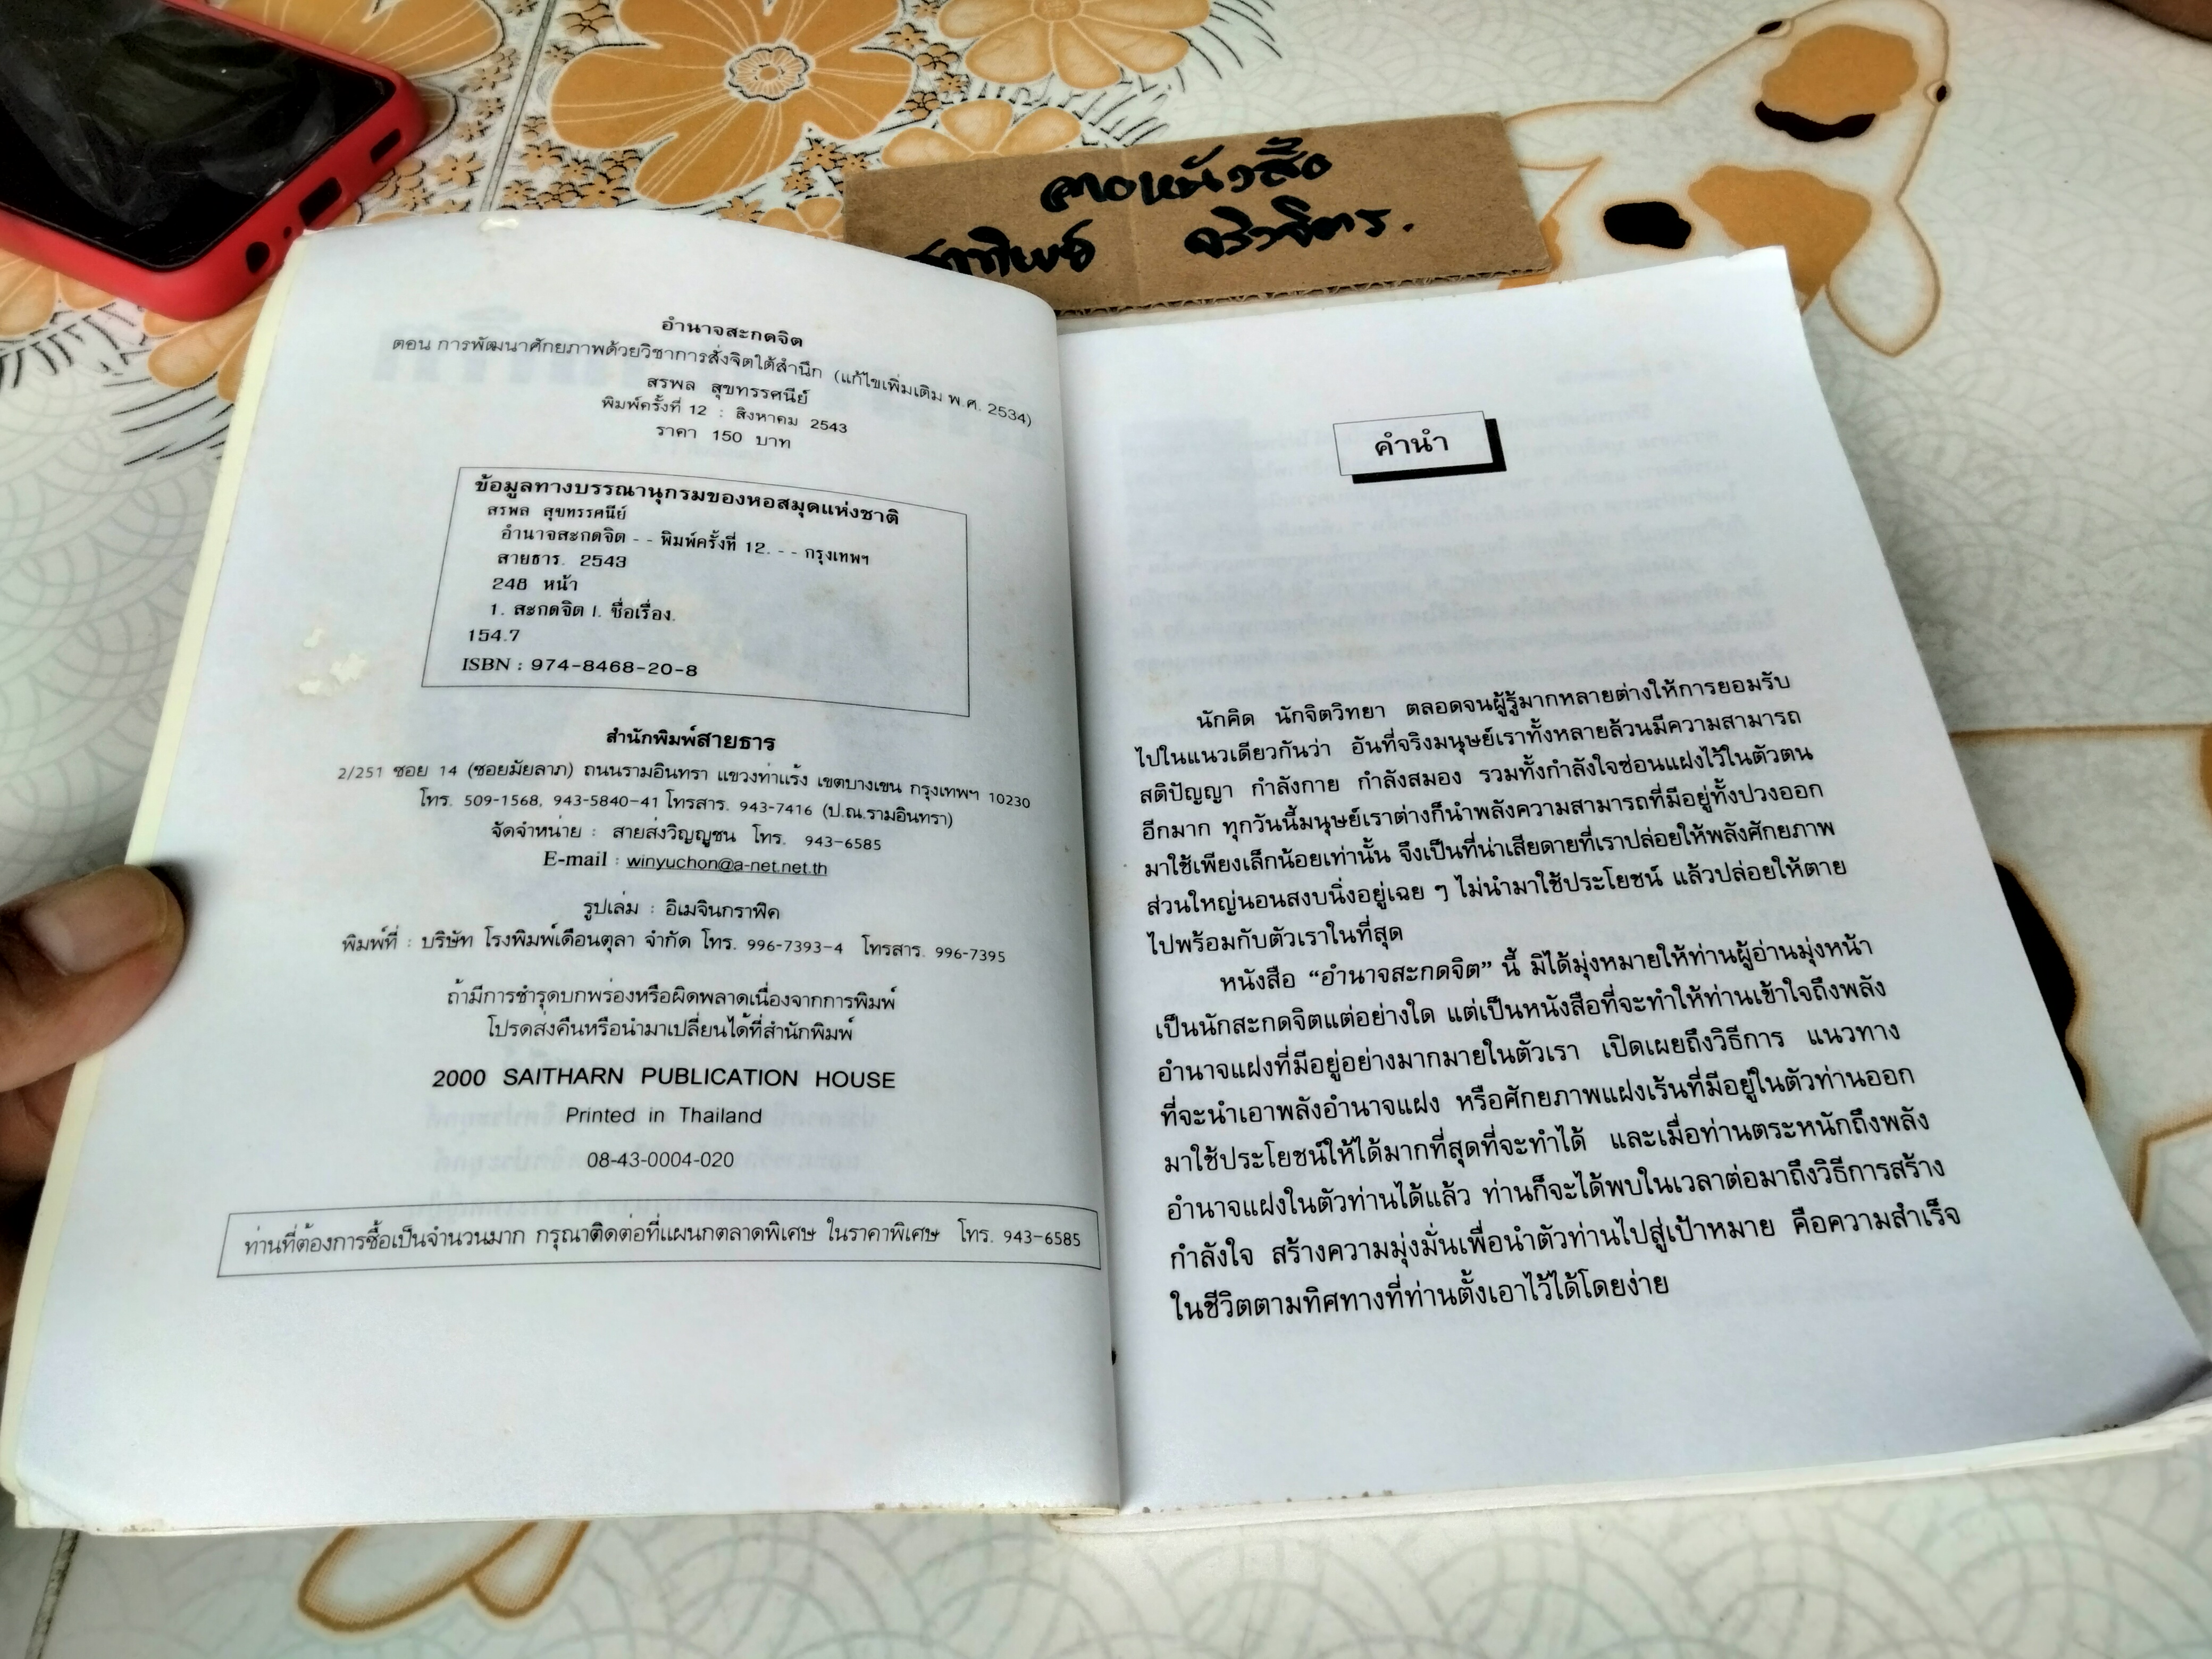 คาอหนังสือ
จริงจิตร.
อำนาจสะกดจิต
ตอน การพัฒนาศักยภาพด้วยวิชาการสั่งจิตใต้สำนึก (แก้ไขเพิ่มเติม พ.ศ. 2534)
สรพล สุขทรรศนีย์
พิมพ์ครั้งที่ 12 : สิงหาคม 2543
ราคา 150 บาท
ข้อมูลทางบรรณานุกรมของหอสมุดแห่งชาติ
สรพล สุขทรรศนีย์
อำนาจสะกดจิต - - พิมพ์ครั้งที่ 12. - - กรุงเทพฯ
สายธาร. 2543
248 หน้า
1. สะกดจิต I. ชื่อเรื่อง.
154.7
ISBN : 974-8468-20-8
สำนักพิมพ์สายธาร
2/251 ซอย 14 (ซอยมัยลาภ) ถนนรามอินทรา แขวงท่าแร้ง เขตบางเขน กรุงเทพฯ 10230
โทร. 509-1568, 943-5840-41 โทรสาร. 943-7416 (ป.ณ.รามอินทรา)
จัดจำหน่าย : สายส่งวิญญูชน โทร. 943-6585
E-mail : winyuchon@a-net.net.th
รูปเล่ม : อิเมจินกราฟิค
พิมพ์ที่ : บริษัท โรงพิมพ์เดือนตุลา จำกัด โทร. 996-7393-4 โทรสาร. 996-7395
ถ้ามีการชำรุดบกพร่องหรือผิดพลาดเนื่องจากการพิมพ์
โปรดส่งคืนหรือนำมาเปลี่ยนได้ที่สำนักพิมพ์
2000 SAITHARN PUBLICATION HOUSE
Printed in Thailand
08-43-0004-020
ท่านที่ต้องการซื้อเป็นจำนวนมาก กรุณาติดต่อที่แผนกตลาดพิเศษ ในราคาพิเศษ โทร. 943-6585
คำนำ
นักคิด นักจิตวิทยา ตลอดจนผู้รู้มากหลายต่างให้การยอมรับ
ไปในแนวเดียวกันว่า อันที่จริงมนุษย์เราทั้งหลายล้วนมีความสามารถ
สติปัญญา กำลังกาย กำลังสมอง รวมทั้งกำลังใจซ่อนแฝงไว้ในตัวตน
อีกมาก ทุกวันนี้มนุษย์เราต่างก็นำพลังความสามารถที่มีอยู่ทั้งปวงออก
มาใช้เพียงเล็กน้อยเท่านั้น จึงเป็นที่น่าเสียดายที่เราปล่อยให้พลังศักยภาพ
ส่วนใหญ่นอนสงบนิ่งอยู่เฉย ๆ ไม่นำมาใช้ประโยชน์ แล้วปล่อยให้ตาย
ไปพร้อมกับตัวเราในที่สุด
หนังสือ “อำนาจสะกดจิต” นี้ มิได้มุ่งหมายให้ท่านผู้อ่านมุ่งหน้า
เป็นนักสะกดจิตแต่อย่างใด แต่เป็นหนังสือที่จะทำให้ท่านเข้าใจถึงพลัง
อำนาจแฝงที่มีอยู่อย่างมากมายในตัวเรา เปิดเผยถึงวิธีการ แนวทาง
ที่จะนำเอาพลังอำนาจแฝง หรือศักยภาพแฝงเร้นที่มีอยู่ในตัวท่านออก
มาใช้ประโยชน์ให้ได้มากที่สุดที่จะทำได้ และเมื่อท่านตระหนักถึงพลัง
อำนาจแฝงในตัวท่านได้แล้ว ท่านก็จะได้พบในเวลาต่อมาถึงวิธีการสร้าง
กำลังใจ สร้างความมุ่งมั่นเพื่อนำตัวท่านไปสู่เป้าหมาย คือความสำเร็จ
ในชีวิตตามทิศทางที่ท่านตั้งเอาไว้ได้โดยง่าย